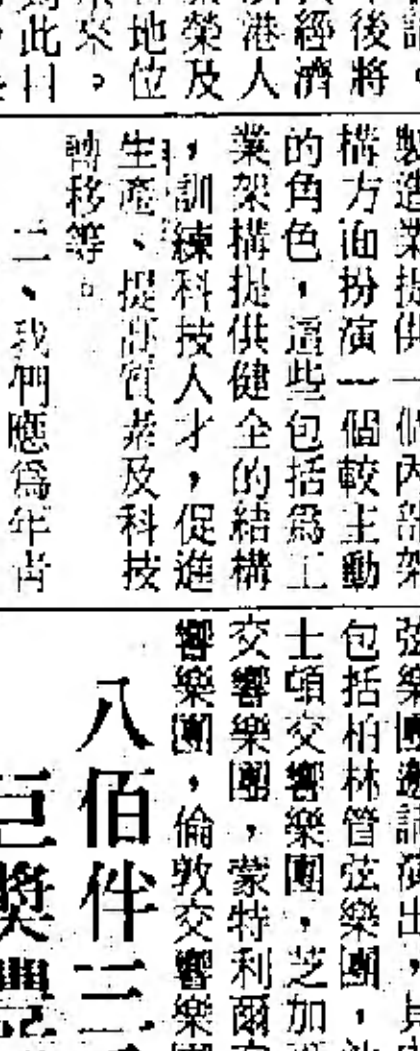 後將
經濟
港人
榮及
地位
來。
此日
製造業提供一個內部架
構方面扮演一個較主動
的角色，這些包括爲工
業架構提供健全的結構
，訓練科技人才，促進
生產、提高質素及科技
轉移等。
三、我們應爲年青
弦樂團邀請演出，
包括柏林管弦樂團，
士頓交響樂團，芝加
交響樂團，蒙特利爾
響樂團，倫敦交響樂
八佰伴三
巨獎豐